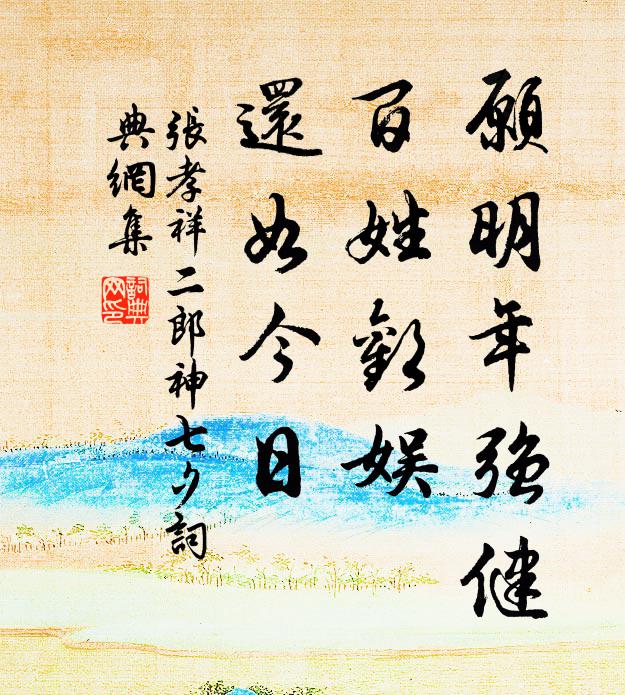 願明年強健
百姓歡娛
還如今日
張孝祥二郎神七夕詞
典網集
詞典
网印